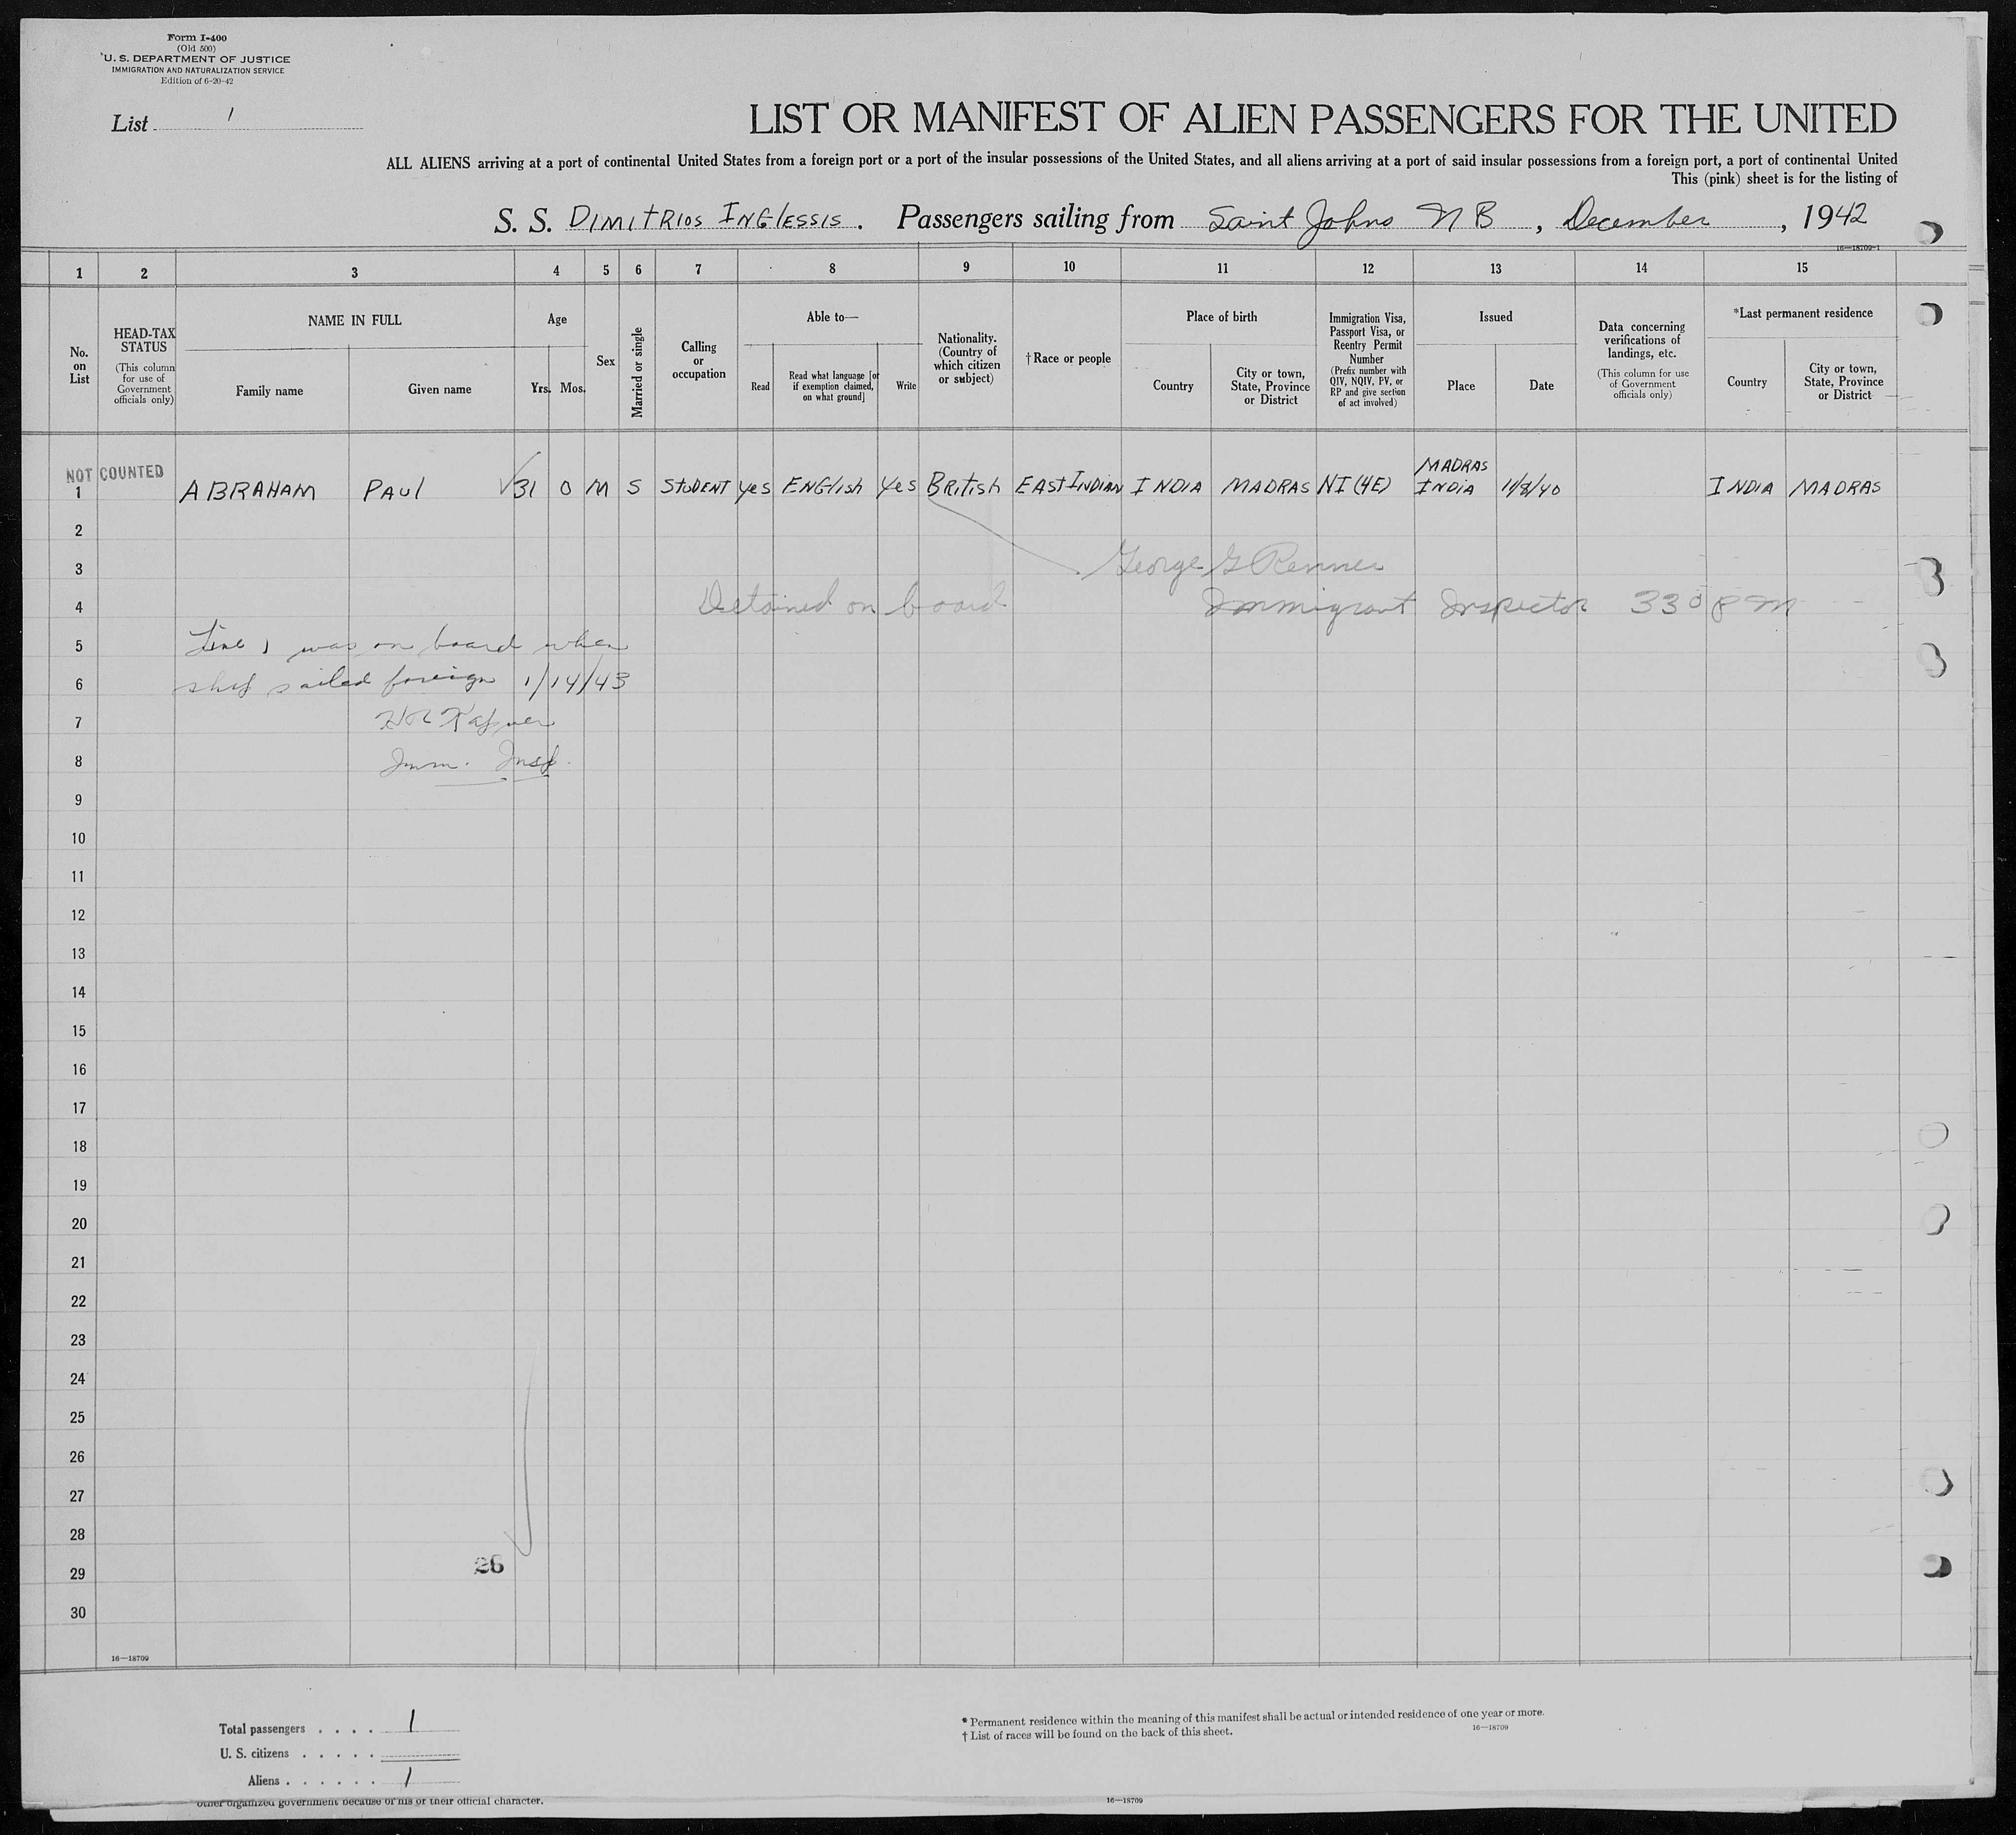 Form I-400
(Old 500)
U. S. DEPARTMENT OF JUSTICE
IMMIGRATION AND NATURALIZATION SERVICE
Edition of 6-20-42
List 1
LIST OR MANIFEST OF ALIEN PASSENGERS FOR THE UNITED
ALL ALIENS arriving at a port of continental United States from a foreign port or a port of the insular possessions of the United States, and all aliens arriving at a port of said insular possessions from a foreign port, a port of continental United
This (pink) sheet is for the listing of
S. S. DIMITRIOS INGLESSIS. Passengers sailing from Saint Johns N B, December, 1942
16—18709-1
1 2 3 4 5 6 7 8 9 10 11 12 13 14 15
No. on List
HEAD-TAX STATUS
(This column for use of Government officials only)
NAME IN FULL
Family name Given name
Age
Yrs. Mos.
Sex
Married or single
Calling or occupation
Able to—
Read
Read what language [or if exemption claimed, on what ground]
Write
Nationality. (Country of which citizen or subject)
†Race or people
Place of birth
Country
City or town, State, Province or District
Immigration Visa, Passport Visa, or Reentry Permit Number
(Prefix number with QIV, NQIV, PV, or RP and give section of act involved)
Issued
Place Date
Data concerning verifications of landings, etc.
(This column for use of Government officials only)
*Last permanent residence
Country
City or town, State, Province or District
NOT COUNTED
1 ABRAHAM PAUL 31 0 M S STUDENT yes ENGlish Yes British EAST INDIAN INDIA MADRAS NI (4E) MADRAS INDIA 11/8/40 INDIA MADRAS
2
3 George G Renner
4 Detained on board Immigrant Inspector 330 PM
5 Line 1 was on board when
6 ship sailed foreign 1/14/43
7
8 Imm. Insp.
9
10
11
12
13
14
15
16
17
18
19
20
21
22
23
24
25
26
27
28
26
29
30
16—18709
Total passengers . . . . 1
U. S. citizens . . . . .
Aliens . . . . . . 1
* Permanent residence within the meaning of this manifest shall be actual or intended residence of one year or more.
† List of races will be found on the back of this sheet.
16—18709
other organized government because of his or their official character.
16—18709